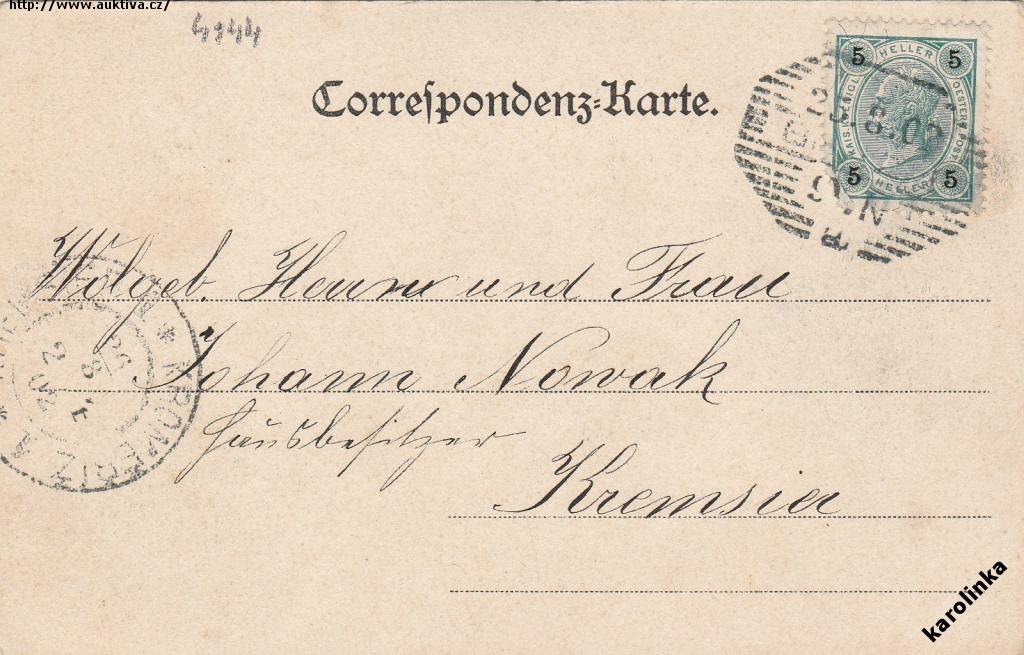 http://www.auktiva.cz/
4144
Correſpondenz=Karte.
5 HELLER 5
KAIS. KÖNIGL. OESTERR. POST
5 HELLER 5
8.00
Wolgeb. Herrn und Frau
Johann Nowak
Hausbesitzer
Kremsier
* KROMERIZ *
karolinka